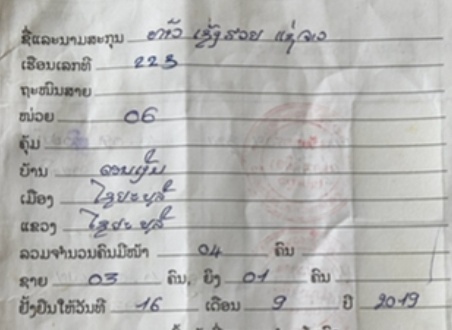 ຊື່ແລະນາມສະກຸນ ທ້າວ ເຊັ່ງສວຍ ແຊ່ຈາວ
ເຮືອນເລກທີ 223
ຖະໜົນສາຍ
ໜ່ວຍ 06
ຄຸ້ມ
ບ້ານ
ເມືອງ ໄຊຍະບູລີ
ແຂວງ ໄຊຍະບູລີ
ລວມຈຳນວນຄົນມີໜ້າ 04 ຄົນ
ຊາຍ 03 ຄົນ, ຍິງ 01 ຄົນ
ຢັ້ງຢືນໃຫ້ວັນທີ 16 ເດືອນ 9 ປີ 2019